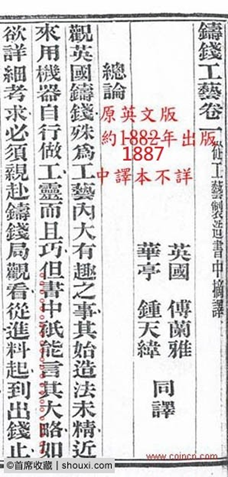 鑄錢工藝卷一 從工藝製造書中摘譯
英國 傅蘭雅
華亭 鍾天緯 同譯
原英文版
約1882年出版
1887
中譯本不詳
總論
觀英國鑄錢殊為工藝內大有趣之事其始造法未精近
來用機器自行做工靈而且巧但書中祇能言其大略如
欲詳細考求必須親赴鑄錢局觀看從進料起到出錢止
@首席收藏 | shouxi.com
www.coincn.com